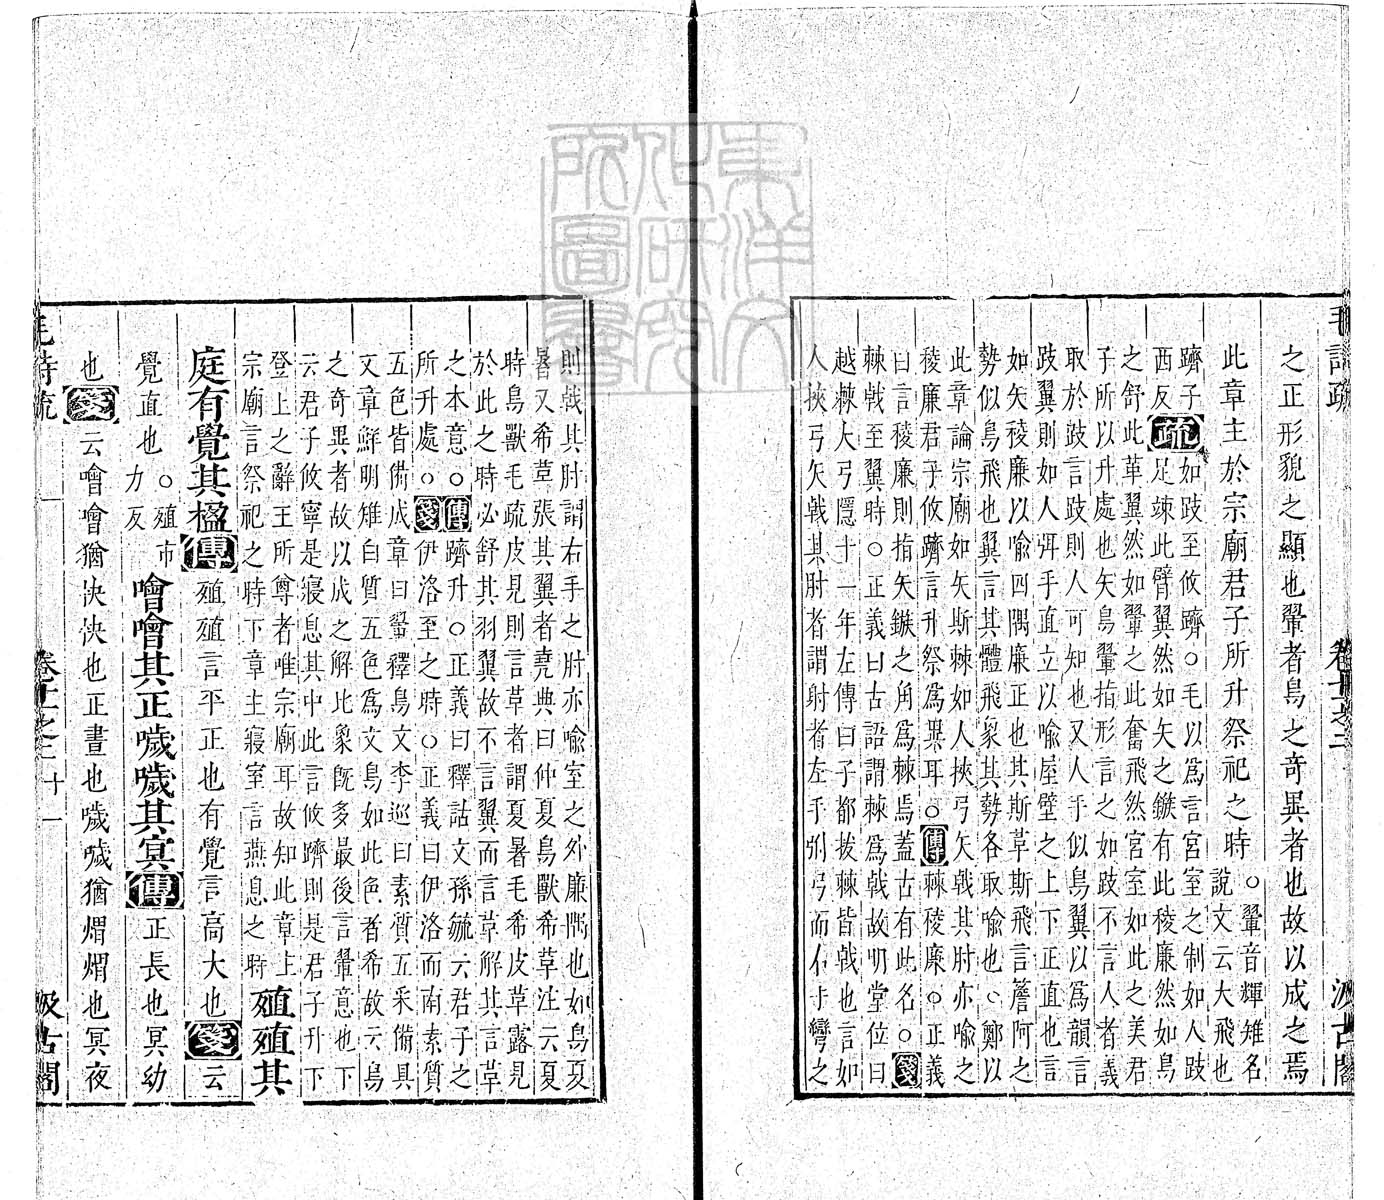 毛詩疏 卷十一之二 汲古閣
之正形貌之顯也翬者鳥之奇異者也故以成之焉
此章主於宗廟君子所升祭祀之時○翬音輝雉名
說文云大飛也
躋子
西反
疏
如跂至攸躋○毛以為言宮室之制如人跂
足竦此臂翼然如矢之鏃有此稜廉然如鳥
之舒此革翼然如翬之此奮飛然宮室如此之美君
子所以升處也矢鳥翬指形言之如跂不言人者義
取於跂言跂則人可知也又人手似鳥翼以為韻言
跂翼則如人弭手直立以喻屋壁之上下正直也言
如矢稜廉以喻四隅廉正也其斯革斯飛言簷阿之
勢似鳥飛也翼言其體飛象其勢各取喻也○鄭以
此章論宗廟如矢斯棘如人挾弓矢戟其肘亦喻之
稜廉君子攸躋言升祭為異耳○傳棘稜廉○正義
曰言稜廉則指矢鏃之角為棘焉蓋古有此名○箋
棘戟至翼時○正義曰古語謂棘為戟故明堂位曰
越棘大弓隱十一年左傳曰子都拔棘皆戟也言如
人挾弓矢戟其肘者謂射者左手弣弓而右手彎之
則戟其肘謂右手之肘亦喻室之外廉隅也如鳥夏
暑又希革張其翼者堯典曰仲夏鳥獸希革注云夏
時鳥獸毛疏皮見則言革者謂夏暑毛希皮革露見
於此之時必舒其羽翼故不言翼而言革解其言革
之本意○傳躋升○正義曰釋詁文孫毓云君子之
所升處○箋伊洛至之時○正義曰伊洛而南素質
五色皆備成章曰翬釋鳥文李巡曰素質五采備具
文章鮮明雉白質五色為文鳥如此色者希故云鳥
之奇異者故以成之解比象既多最後言翬意也下
云君子攸寧是寢息其中此言攸躋則是君子升下
登上之辭王所尊者唯宗廟耳故知此章上
宗廟言祭祀之時下章主寢室言燕息之時 殖殖其
庭有覺其楹傳殖殖言平正也有覺言高大也箋云
覺直也○殖市
力反
噲噲其正噦噦其冥傳正長也冥幼
也箋云噲噲猶快快也正晝也噦噦猶煟煟也冥夜
毛詩疏 卷十一之二 十一 汲古閣
東洋文化研究所圖書